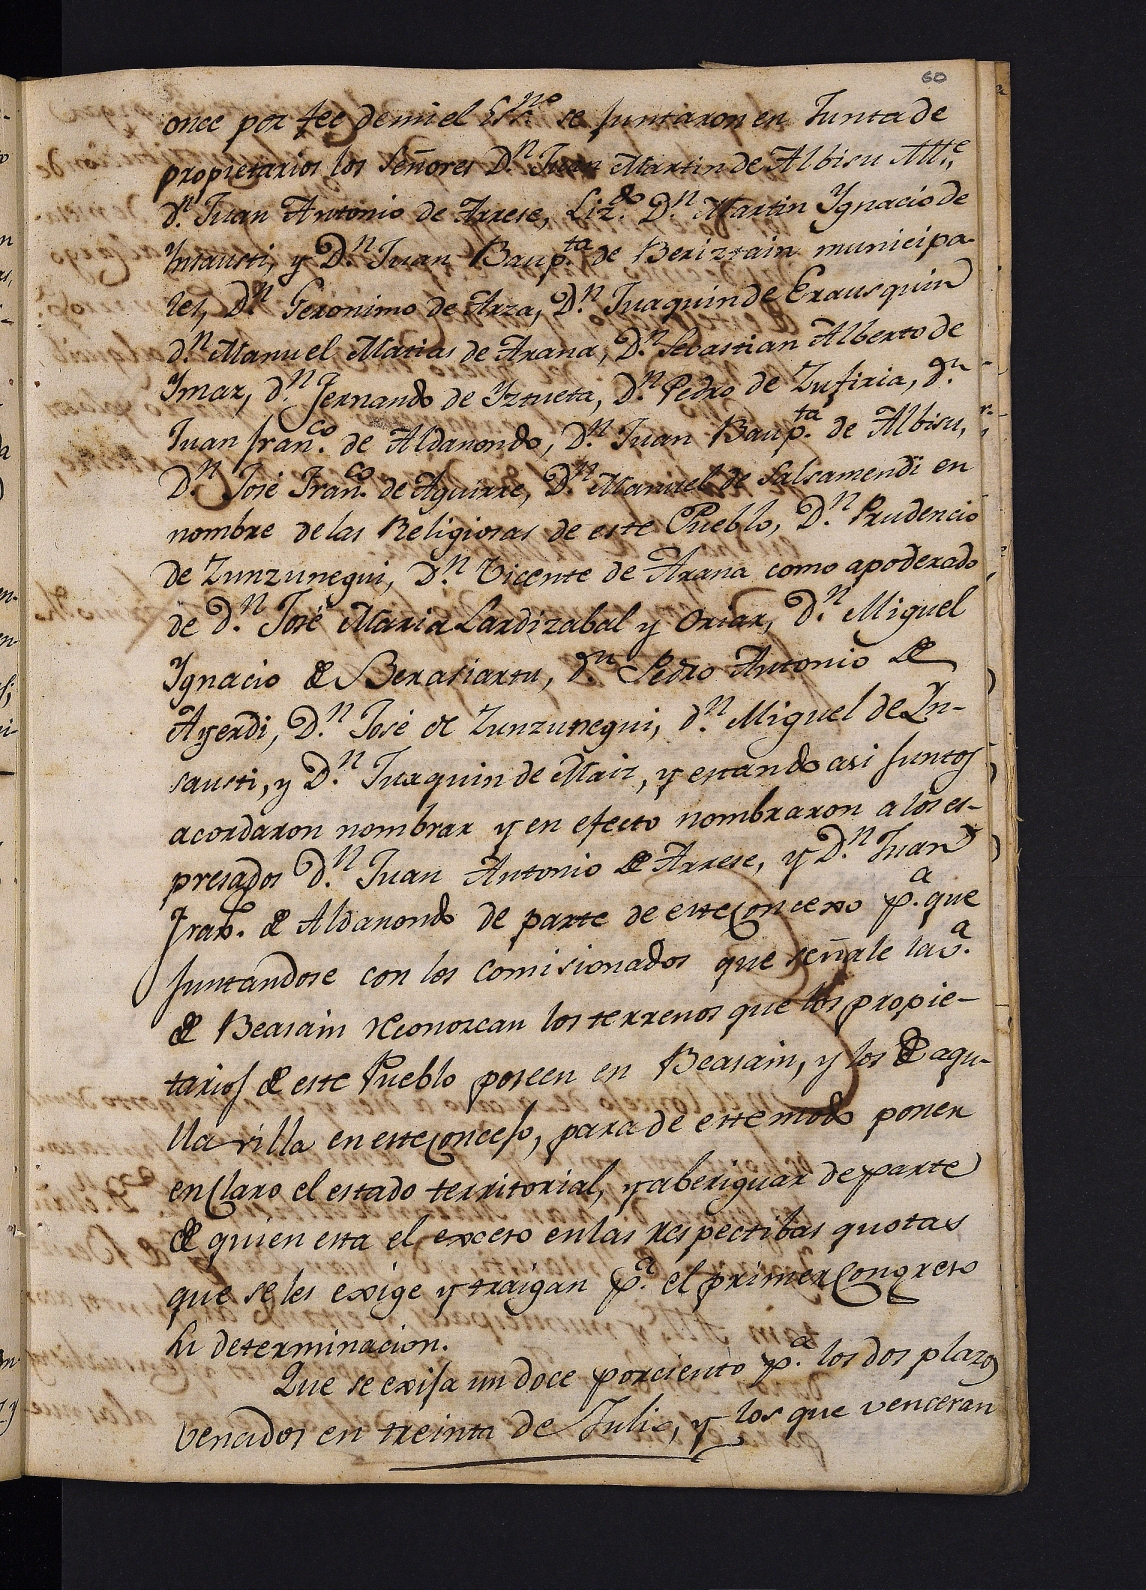 60
once por fee de mi el Ess.no se juntaron en Junta de
propietarios los Señores D.n Juan Martin de Albisu Alle.
d.n Juan Antonio de Arrese, Liz.do D.n Martin Ygnacio de
Insausti, y D.n Juan Baup.ta de Beriztain municipa-
les, D.n Geronimo de Arza, D.n Juaquin de Erausquin
d.n Manuel Matias de Arana, D.n Sebastian Alberto de
Ymaz, d.n Fernando de Yztueta, D.n Pedro de Zufiria, d.n
Juan fran.co de Aldanondo, D.n Juan Baup.ta de Albisu,
D.n José Fran.co de Aguirre, D.n Manuel de Salsamendi en
nombre de las Religiosas de este Pueblo, D.n Prudencio
de Zunzunegui, D.n Vicente de Arana como apoderado
de D.n José Maria Lardizabal y Oriar, D.n Miguel
Ygnacio de Berasiartu, d.n Pedro Antonio de
Ayerdi, D.n José de Zunzunegui, d.n Miguel de In-
sausti, y D.n Juaquin de Maiz, y estando asi juntos
acordaron nombrar y en efecto nombraron a los es-
presados D.n Juan Antonio de Arrese, y D.n Juan
Fran.co de Aldanondo de parte de este Concexo p.a que
juntandose con los Comisionados que señale la v.a
de Beasain reconozcan los terrenos que los propie-
tarios de este Pueblo poseen en Beasain, y los de aque-
lla villa en este Concejo, para de este modo poner
en Claro el estado territorial, y aberiguar de parte
de quien esta el exceso en las respectibas quotas
que se les exige y traigan p.a el primer Congreso
su determinacion.
Que se exija un doce por ciento p.a los dos plazos
vencidos en treinta de Julio, y los que venceran